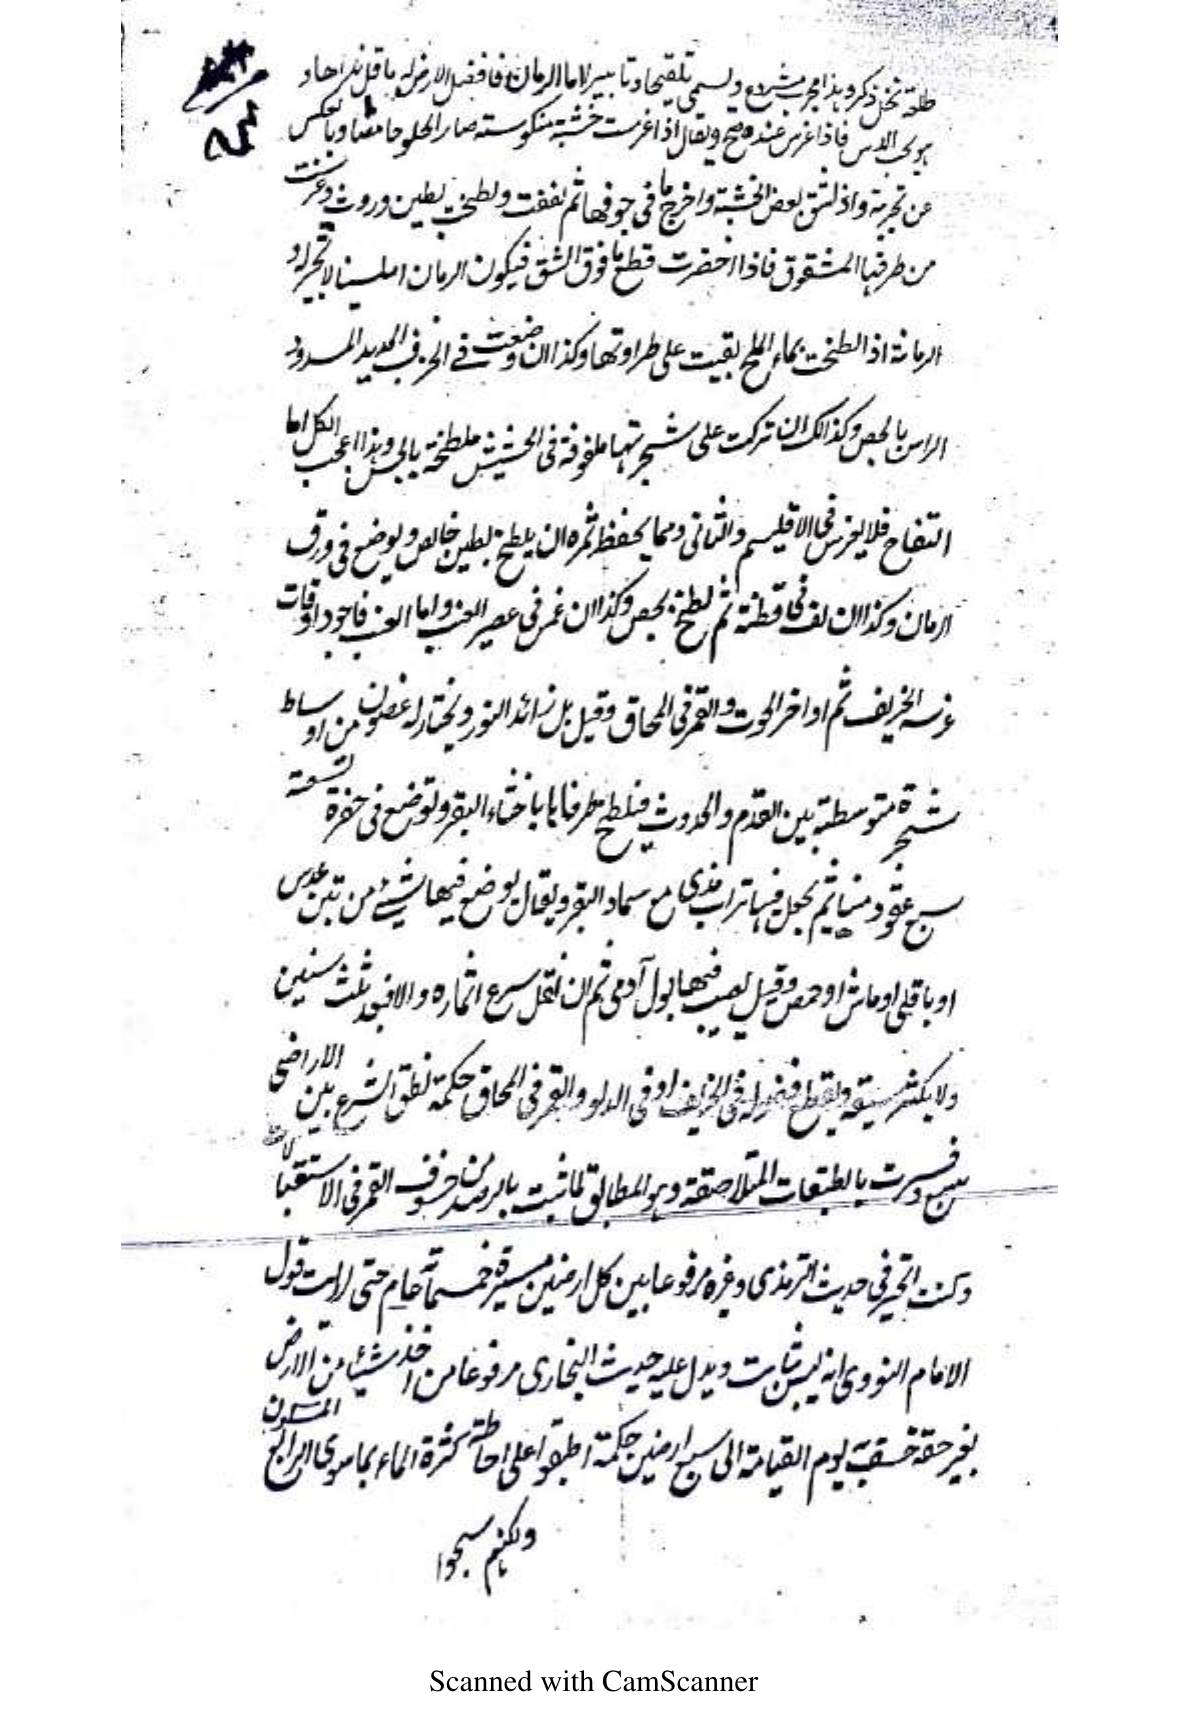 طلع نخل ذكر وهذا مجرب مشهور ويسمى تلقيحا وتابيرا اما الرمان فافضل الارض له ما قل نداها و
فاذا غرس عنده صح ويقال اذا غرست خشبة منكوسته صار الحلو حامضا وبالعكس
عن تجربة واذا شق بعض الخشبة واخرج ما فى جوفها ثم لففت ولطخت بطين وروث وغرست
من طرفها المشقوق فاذا اخضرت قطع ما فوق الشق فيكون الرمان امليسيا لا عجم له و
الرمانة اذا لطخت بماء الملح بقيت على طراوتها وكذا ان وضعت فے الخزف الجديد المسدود
الراس بالجص وكذالك ان تركت على شجرتها ملفوفة فى الحشيش ملطخة بالجص وهذا اعجب الكل اما
التفاح فلا يغرس فى الاقليم والثانى ومما يحفظ ثمره ان يلطخ بطين خالص ويوضع فى ورق
الرمان وكذا ان لف فى قطنة ثم لطخ بجص وكذا ان غمر فى عصير العنب واما العنب فاجود اوقات
غرسه الخريف ثم اواخر الحوت والقمر فى المحاق وقيل بل زائد النور ويختار له غصون من اوساط
شجرة متوسطة بين القدم والحدوث فيلطخ طرفاها باخثاء البقر وتوضع فى حفرة
سبع عقود منها ثم يجعل فيها تراب ندى مع سماد البقر ويقال يوضع فيها شئ من تبن عدس
او باقلى او ماش او حمص وقيل يصب فيها بول آدمى ثم ان نقل سرع اثماره والا فبعد ثلث سنين
ولا يكثر سقيه ويقطع فضوله فى الخريف او فى الدلو والقمر فى المحاق حكمة نطق الشرع بين الاراضى
سبع وفسرت بالطبقات المتلاصقة وهو المطابق لما ثبت بالرصد من خسوف القمر فى الاستقبالات
وكنت اتحير فى حديث الترمذى وغيره مرفوعا بين كل ارضين مسيرة خمسمائة عام حتى رايت قول
الامام النووى انه ليس بثابت ويدل عليه حديث البخارى مرفوعا من اخذ شيئا من الارض
بغير حقه خسف به يوم القيامة الى سبع ارضين حكمة اطبقوا على احاطة كثرة الماء بما سوى الربع المسكون
ولكنهم سبحوا
Scanned with CamScanner